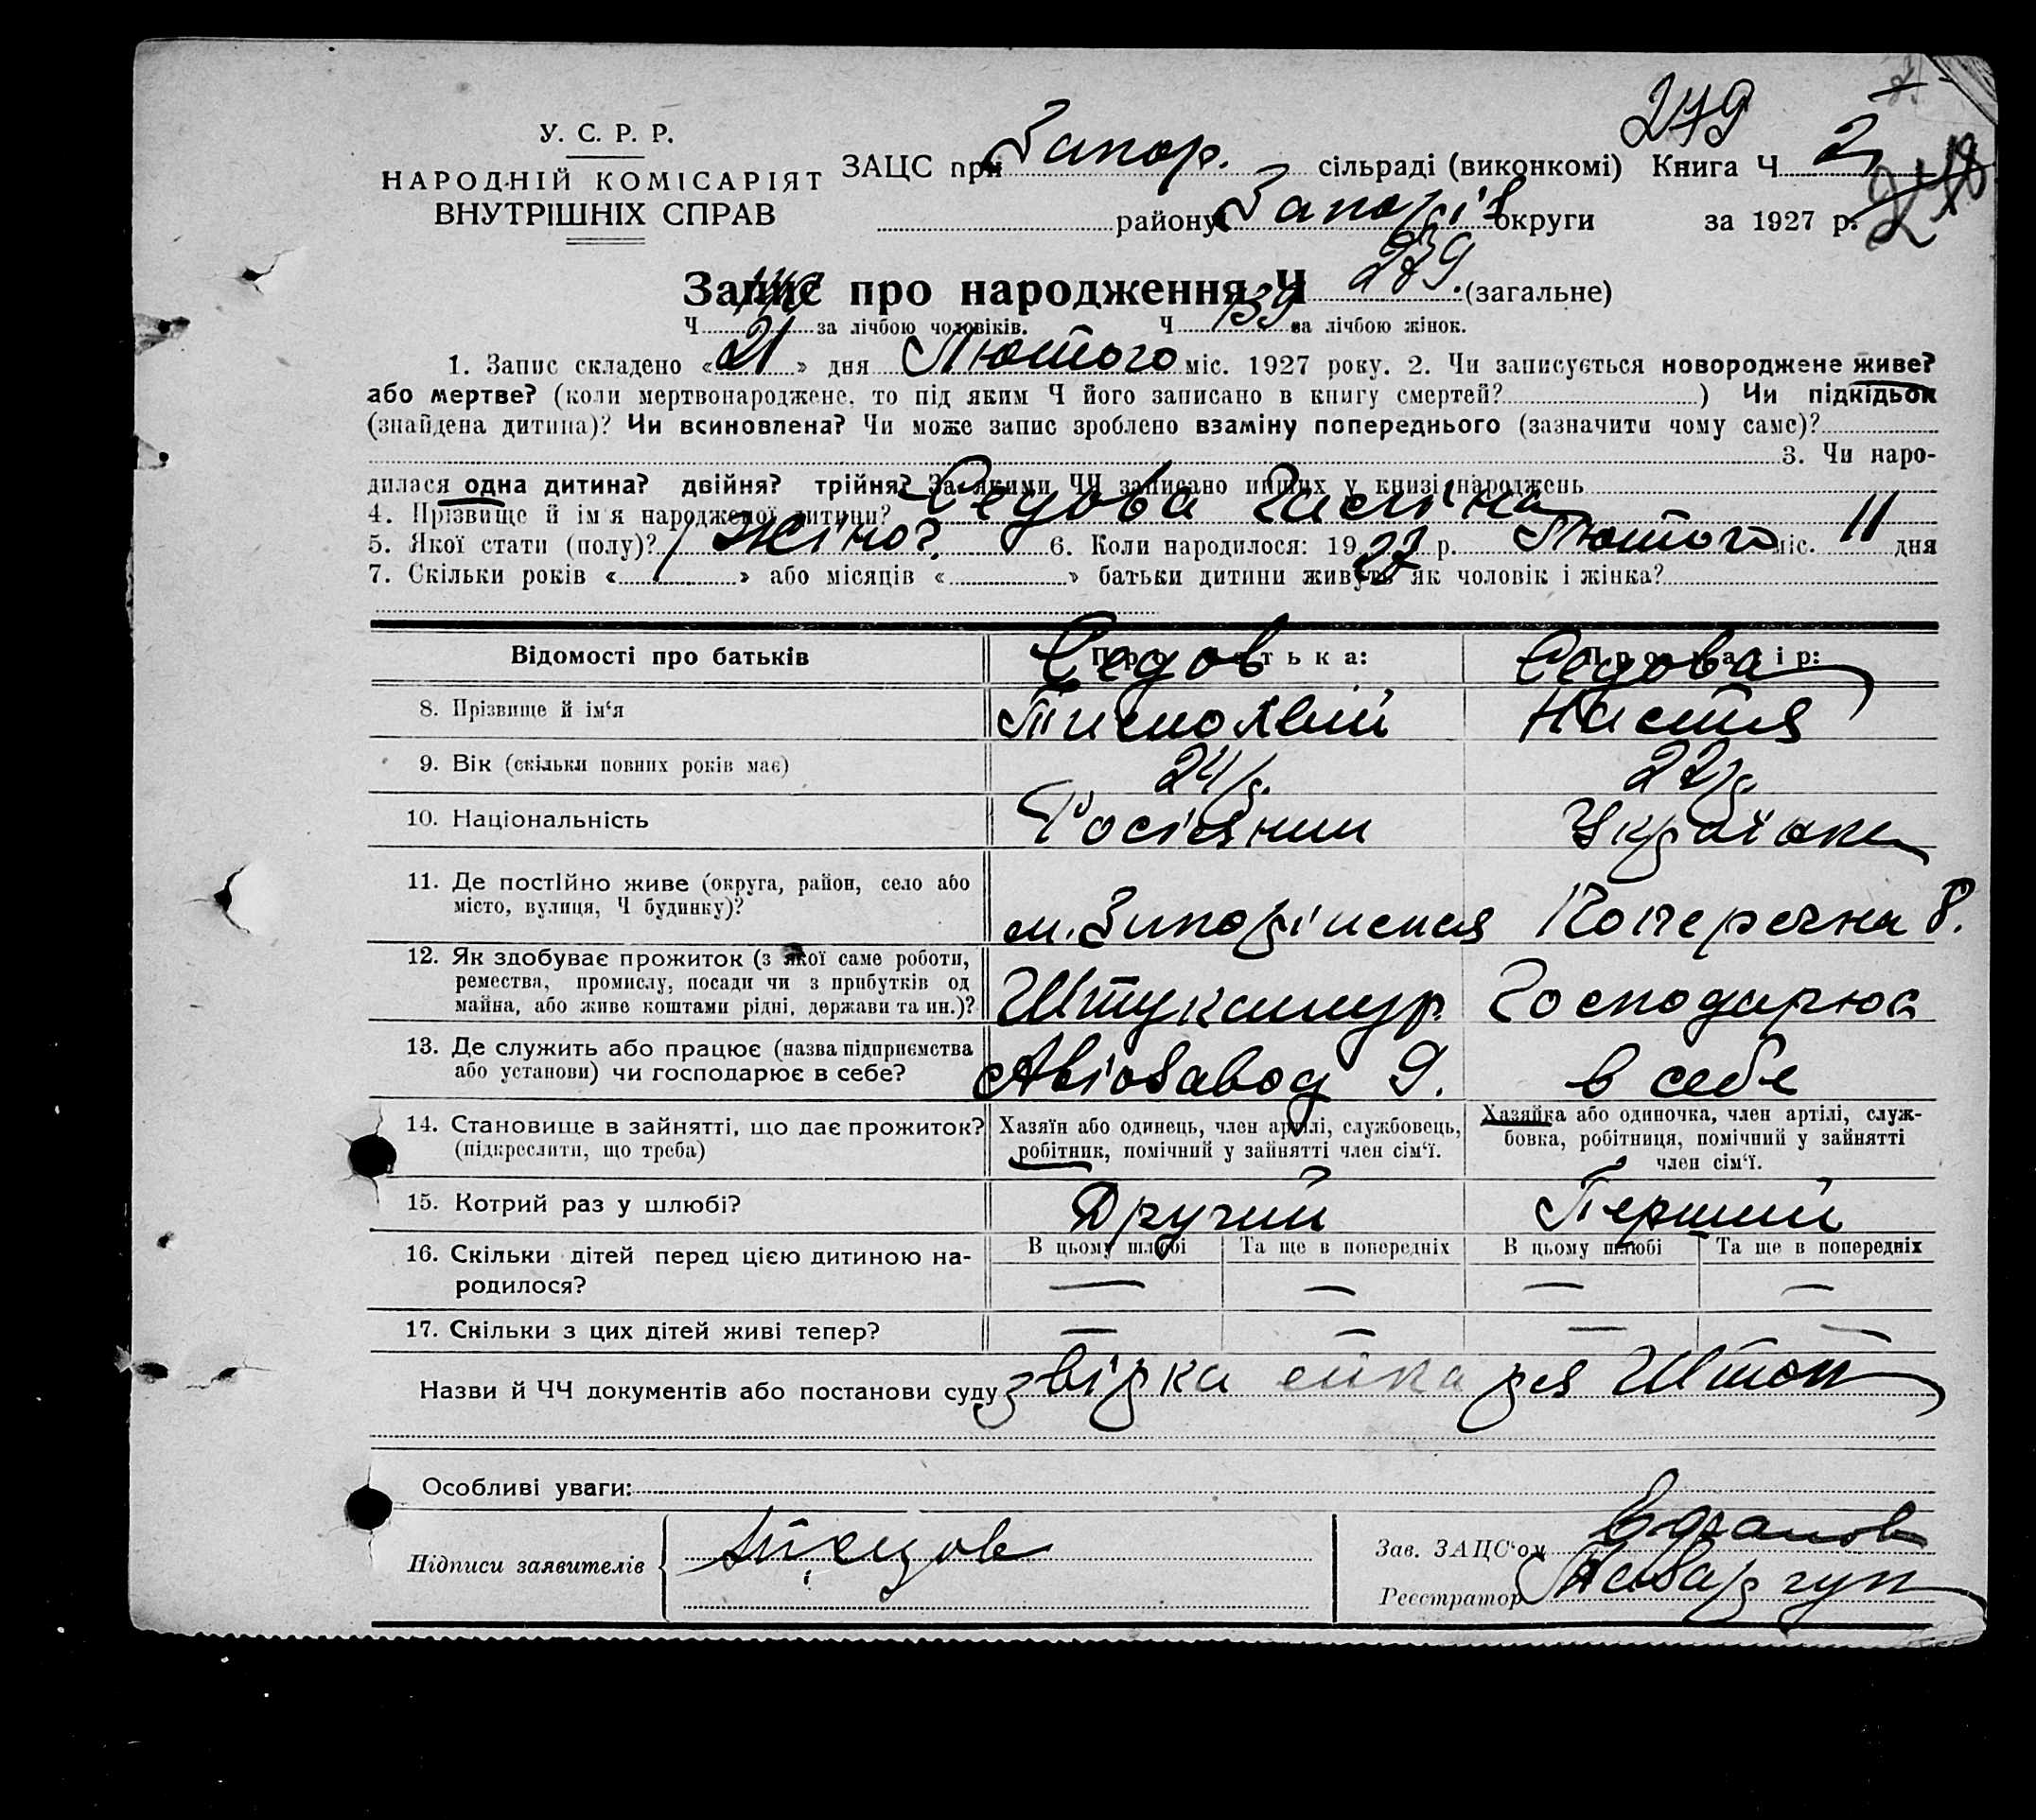 279
У. С. Р. Р.
НАРОДНІЙ КОМІСАРІЯТ
ВНУТРІШНІХ СПРАВ
ЗАЦС при Запор. сільраді (виконкомі) Книга Ч 2
району Запоріз округи за 1927 р. 278
Запис про народження Ч 279. (загальне)
Ч за лічбою чоловіків. Ч 139 за лічбою жінок.
1. Запис складено «21» дня Лютого міс. 1927 року. 2. Чи записується новороджене живе?
або мертве? (коли мертвонароджене, то під яким Ч його записано в книгу смертей?) Чи підкідьок
(знайдена дитина)? Чи всиновлена? Чи може запис зроблено взаміну попереднього (зазначити чому саме)?
3. Чи наро-
дилася одна дитина? двійня? трійня? За якими ЧЧ записано инших у книзі народжень
4. Прізвище й ім'я народженої дитини? Седова Галіна
5. Якої стати (полу)? Жіноч. 6. Коли народилося: 1927 р. Лютого міс. 11 дня
7. Скільки років «» або місяців «» батьки дитини живуть як чоловік і жінка?
Відомості про батьків Про батька: Про матір:
Седов Седова
8. Прізвище й ім'я Тимофвій Настя
9. Вік (скільки повних років має) 24 р. 22 р.
10. Національність Росіянин Українка
11. Де постійно живе (округа, район, село або
місто, вулиця, Ч будинку)? м. Запоріжжя Поперечна 8.
12. Як здобуває прожиток (з якої саме роботи,
ремества, промислу, посади чи з прибутків од
майна, або живе коштами рідні, держави та ин.)? Штукатур. Господарює
13. Де служить або працює (назва підприємства
або установи) чи господарює в себе? Авіозавод 9. в себе
14. Становище в зайнятті, що дає прожиток?
(підкреслити, що треба)
Хазяїн або одинець, член артілі, службовець,
робітник, помічний у зайнятті член сім'ї.
Хазяйка або одиночка, член артілі, служ-
бовка, робітниця, помічний у зайнятті
член сім'ї.
15. Котрий раз у шлюбі? Другий Перший
В цьому шлюбі Та ще в попередніх В цьому шлюбі Та ще в попередніх
16. Скільки дітей перед цією дитиною на-
родилося? — — — —
17. Скільки з цих дітей живі тепер? — — — —
Назви й ЧЧ документів або постанови суду
Особливі уваги:
Підписи заявителів
Зав. ЗАЦС'ом
Реєстратор